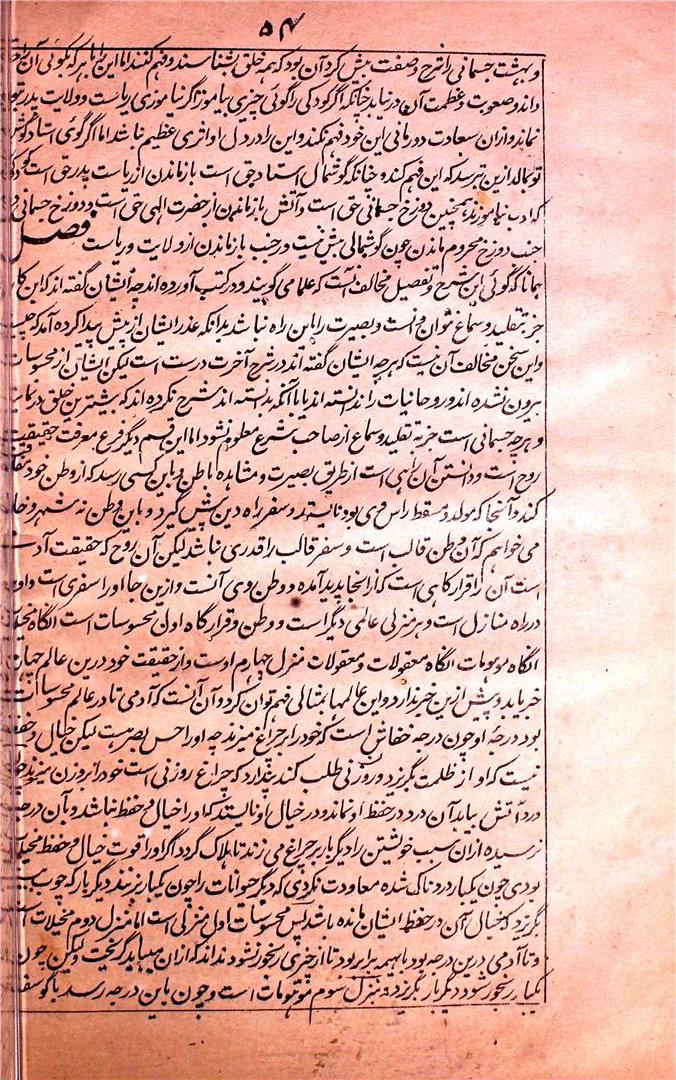 ۵۴
و بهشت جسمانی را شرح و صفت بیش کرد آن بود که همه خلق بشناسند و فهم کنند اما این را با هر که بگوئی آن را
داند و صعوبت و عظمت آن در نیابد چنانکه اگر کودکی را گوئی چیزی بیاموز اگر نیاموزی ریاست و ولایت پدر بتو
نماند و از آن سعادت دور مانی این خود فهم نکند و این را در دل او اثری عظیم نباشد اما اگر گوئی استاد گوش
تو بمالد ازین بترسد که این فهم کند و چنانکه گوشمال استاد حق است بازماندن از ریاست پدر حق است کودکی
که ادب نیاموزد همچنین دوزخ جسمانی حق است و آتش بازماندن از حضرت الهی حق است و دوزخ جسمانی در
جنب دوزخ محروم ماندن چون گوشمالی بیش نیست در جنب بازماندن از ولایت و ریاست فصل
همانا که گوئی این شرح و تفصیل مخالف آنست که علما می گویند و در کتب آورده اند چه ایشان گفته اند که این کار
جز بتقلید و سماع نتوان دانست و بصیرت را باین راه نباشد بدانکه عذر ایشان از پیش پیدا کرده آمد که چیست
و این سخن مخالف آن نیست که هر چه ایشان گفته اند در شرح آخرت درست است لیکن ایشان از محسوسات
بیرون نشده اند و روحانیات را ندانسته اند یا با آنکه بدانسته اند شرح نکرده اند که بیشترین خلق در نیابند
و هر چه جسمانی است جز به تقلید و سماع از صاحب شرع معلوم نشود اما این قسم دیگر فرع معرفت حقیقت
روح است و دانستن آن راهی است از طریق بصیرت و مشاهده باطن و باین کسی رسد که از وطن خود مفارقت
کند و آنجا که مولد و مسقط راس وی بود نایستد و سفر راه دین پیش گیرد و باین وطن نه شهر و خانه
می خواهم که آن وطن قالب است و سفر قالب را قدری نباشد لیکن آن روح که حقیقت آدمی
است آن را قرارگاهی است که از آنجا پدید آمده و وطن وی آنست و ازین جا او را سفری است و او را
در راه منازل است و هر منزلی عالمی دیگر است و وطن و قرارگاه اول محسوسات است آنگاه متخیلات
آنگاه موهومات آنگاه معقولات و معقولات منزل چهارم اوست و از حقیقت خود درین عالم چهارم
خبر یابد و پیش ازین خبر ندارد و این عالمها بمثالی فهم توان کرد و آن آنست که آدمی تا در عالم محسوسات
بود درجهٔ او چون درجه خفاش است که خود را بر چراغ میزند چه او را حس بصر هست لیکن خیال و حفظ
نیست که او از ظلمت بگریزد و روزنی طلب کند پندارد که چراغ روزنی است خود را بر وزن میزند چون
درد آتش بیابد آن درد در حفظ او نماند و در خیال او نایستد که او را خیال و حفظ نباشد و بآن درجه
نرسیده از آن سبب خویشتن را دیگر بار بر چراغ می زند تا هلاک گردد اگر او را قوت خیال و حفظ متخیلات
بودی چون یکبار دردناک شده معاودت نکردی که دیگر حیوانات را چون یکبار بزنند دیگر بار که چوب بینند
بگریزد که خیال آن در حفظ ایشان مانده باشد پس محسوسات اول منزلی است اما منزل دوم متخیلات است
و تا آدمی درین درجه بود با بهیمه برابر بود تا از چیزی رنجور نشود نداند که از آن میباید گریخت ولیکن چون
یکبار رنجور شود دیگر بار بگریزد و منزل سوم موهومات است و چون باین درجه رسد با گوسفند